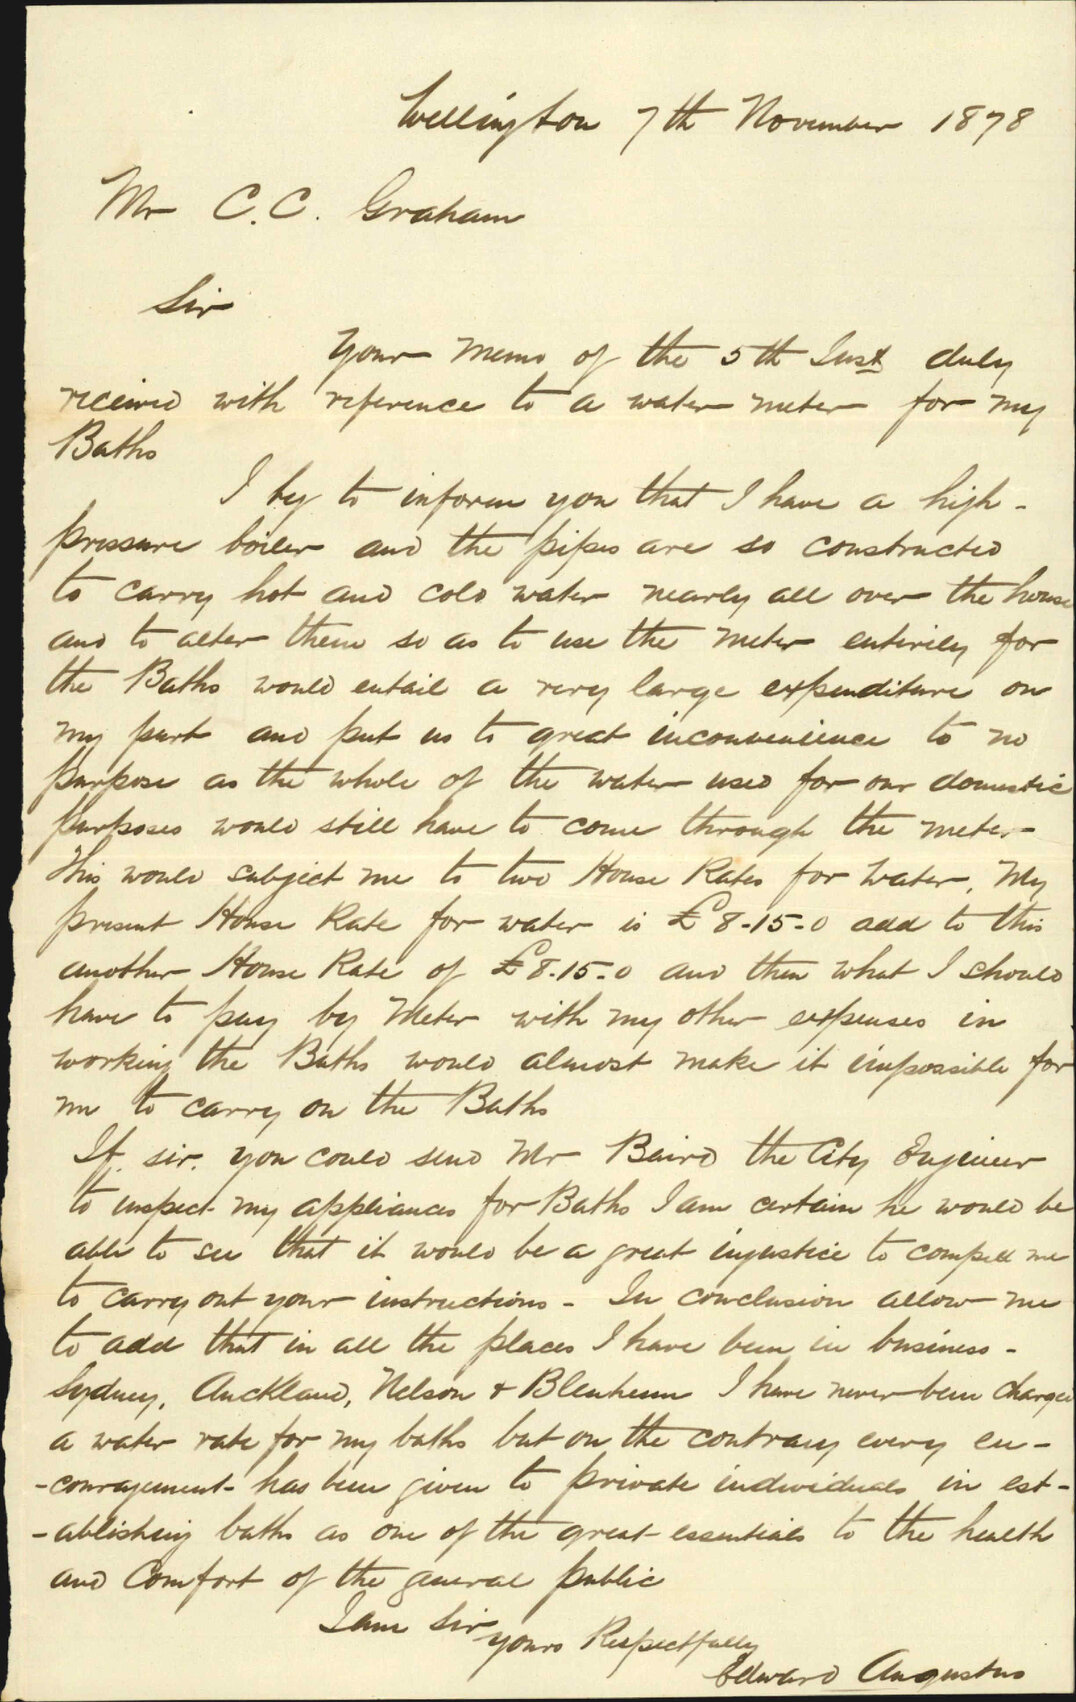 Wellington 7th November 1878
Mr C.C. Graham
Sir
Your Memo of the 5th Inst duly
received with reference to a water meter for my
Baths
I beg to inform you that I have a high-
pressure boiler and the pipes are so constructed
to carry hot and cold water nearly all over the house
and to alter them so as to use the Meter entirely for
the Baths would entail a very large expenditure on
my part and put us to great inconvenience to no
purpose as the whole of the water used for our domestic
purposes would still have to come through the meter
This would subject me to two House Rates for Water. My
present House Rate for water is £8-15-0 add to this
another House Rate of £8.15-0 and then what I should
have to pay by Meter with my other expenses in
working the Baths would almost make it impossible for
me to carry on the Baths
If, sir, you could send Mr Baird the City Engineer
to inspect my appliances for Baths I am certain he would be
able to see that it would be a great injustice to compell me
to carry out your instructions - In conclusion allow me
to add that in all the places I have been in business -
Sydney, Auckland, Nelson & Blenheim I have never been charged
a water rate for my baths but on the contrary every en-
-couragement has been given to private individuals in est-
-ablishing baths as one of the great essentials to the health
and Comfort of the general public
I am Sir
yours Respectfully
Edward Augustus